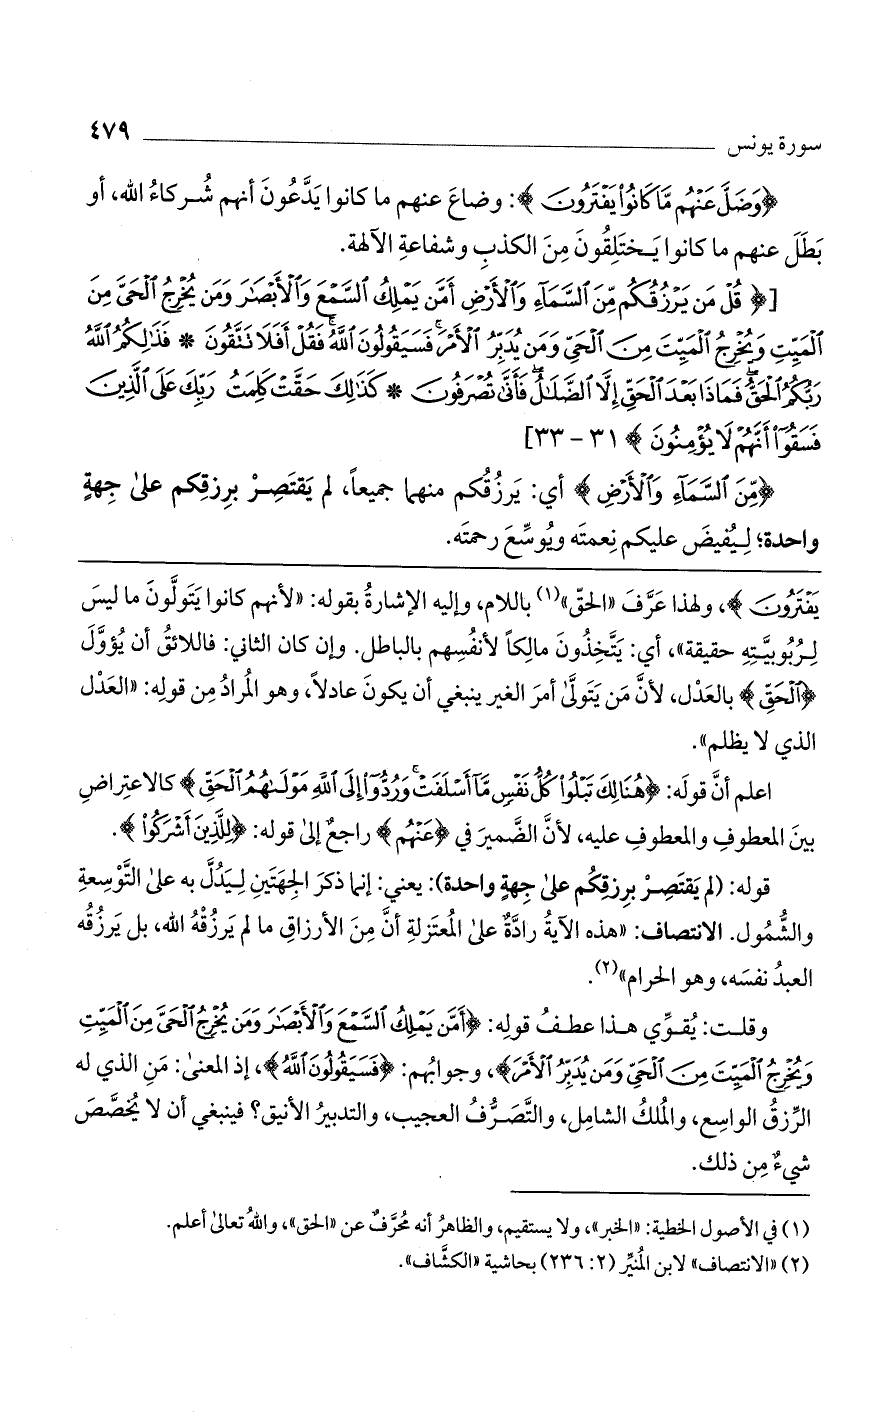 سورة يونس ٤٧٩
﴿وَضَلَّ عَنْهُم مَّا كَانُوا۟ يَفْتَرُونَ﴾: وضاعَ عنهم ما كانوا يَدَّعُونَ أنهم شُركاءُ الله، أو
بَطَلَ عنهم ما كانوا يَختَلِقُونَ مِنَ الكذبِ وشفاعةِ الآلهة.
[﴿قُلْ مَن يَرْزُقُكُم مِّنَ ٱلسَّمَآءِ وَٱلْأَرْضِ أَمَّن يَمْلِكُ ٱلسَّمْعَ وَٱلْأَبْصَـٰرَ وَمَن يُخْرِجُ ٱلْحَىَّ مِنَ
ٱلْمَيِّتِ وَيُخْرِجُ ٱلْمَيِّتَ مِنَ ٱلْحَىِّ وَمَن يُدَبِّرُ ٱلْأَمْرَ ۚ فَسَيَقُولُونَ ٱللَّهُ ۚ فَقُلْ أَفَلَا تَتَّقُونَ * فَذَٰلِكُمُ ٱللَّهُ
رَبُّكُمُ ٱلْحَقُّ ۖ فَمَاذَا بَعْدَ ٱلْحَقِّ إِلَّا ٱلضَّلَـٰلُ ۖ فَأَنَّىٰ تُصْرَفُونَ * كَذَٰلِكَ حَقَّتْ كَلِمَتُ رَبِّكَ عَلَى ٱلَّذِينَ
فَسَقُوٓا۟ أَنَّهُمْ لَا يُؤْمِنُونَ﴾ ٣١ - ٣٣]
﴿مِّنَ ٱلسَّمَآءِ وَٱلْأَرْضِ﴾ أي: يَرزُقُكم منهما جميعاً، لم يَقتَصِرْ برِزقِكم علىٰ جِهةٍ
واحدة؛ لِيُفيضَ عليكم نِعمتَه ويُوسِّعَ رحمتَه.
يَفْتَرُونَ﴾، ولهذا عَرَّفَ «الحقّ»(١) باللام، وإليه الإشارةُ بقوله: «لأنهم كانوا يَتَولَّونَ ما ليسَ
لِرُبُوبيَّتِهِ حقيقة»، أي: يَتَّخِذُونَ مالِكاً لأنفُسِهم بالباطل. وإن كان الثاني: فاللائقُ أن يُؤوَّلَ
﴿ٱلْحَقِّ﴾ بالعَدْل، لأنَّ مَن يَتَولَّىٰ أمرَ الغير ينبغي أن يكونَ عادلاً، وهو المُرادُ مِن قولِه: «العَدْل
الذي لا يظلم».
اعلم أنَّ قولَه: ﴿هُنَالِكَ تَبْلُوا۟ كُلُّ نَفْسٍ مَّآ أَسْلَفَتْ ۚ وَرُدُّوٓا۟ إِلَى ٱللَّهِ مَوْلَىٰهُمُ ٱلْحَقِّ﴾ كالاعتِراضِ
بينَ المعطوفِ والمعطوفِ عليه، لأنَّ الضَّميرَ في ﴿عَنْهُم﴾ راجعٌ إلىٰ قوله: ﴿لِلَّذِينَ أَشْرَكُوا۟﴾.
قوله: (لم يَقتَصِرْ برِزقِكُم علىٰ جِهةٍ واحدة): يعني: إنما ذكرَ الجِهتَينِ لِيَدُلَّ به علىٰ التَّوْسِعةِ
والشُّمُول. الانتصاف: «هذه الآيةُ رادَّةٌ علىٰ المُعتَزلةِ أنَّ مِنَ الأرزاقِ ما لم يَرزُقْهُ الله، بل يَرزُقُه
العبدُ نفسَه، وهو الحرام»(٢).
وقلت: يُقوِّي هذا عطفُ قولِه: ﴿أَمَّن يَمْلِكُ ٱلسَّمْعَ وَٱلْأَبْصَـٰرَ وَمَن يُخْرِجُ ٱلْحَىَّ مِنَ ٱلْمَيِّتِ
وَيُخْرِجُ ٱلْمَيِّتَ مِنَ ٱلْحَىِّ وَمَن يُدَبِّرُ ٱلْأَمْرَ﴾، وجوابُهم: ﴿فَسَيَقُولُونَ ٱللَّهُ﴾، إذ المعنىٰ: مَنِ الذي له
الرِّزقُ الواسِع، والمُلكُ الشامِل، والتَّصَرُّفُ العجيب، والتدبيرُ الأنيق؟ فينبغي أن لا يُخصَّصَ
شيءٌ مِن ذلك.
(١) في الأصول الخطية: «الخبر»، ولا يستقيم، والظاهرُ أنه مُحرَّفٌ عن «الحق»، واللهُ تعالىٰ أعلم.
(٢) «الانتصاف» لابن المُنيِّر (٢: ٢٣٦) بحاشية «الكشَّاف».